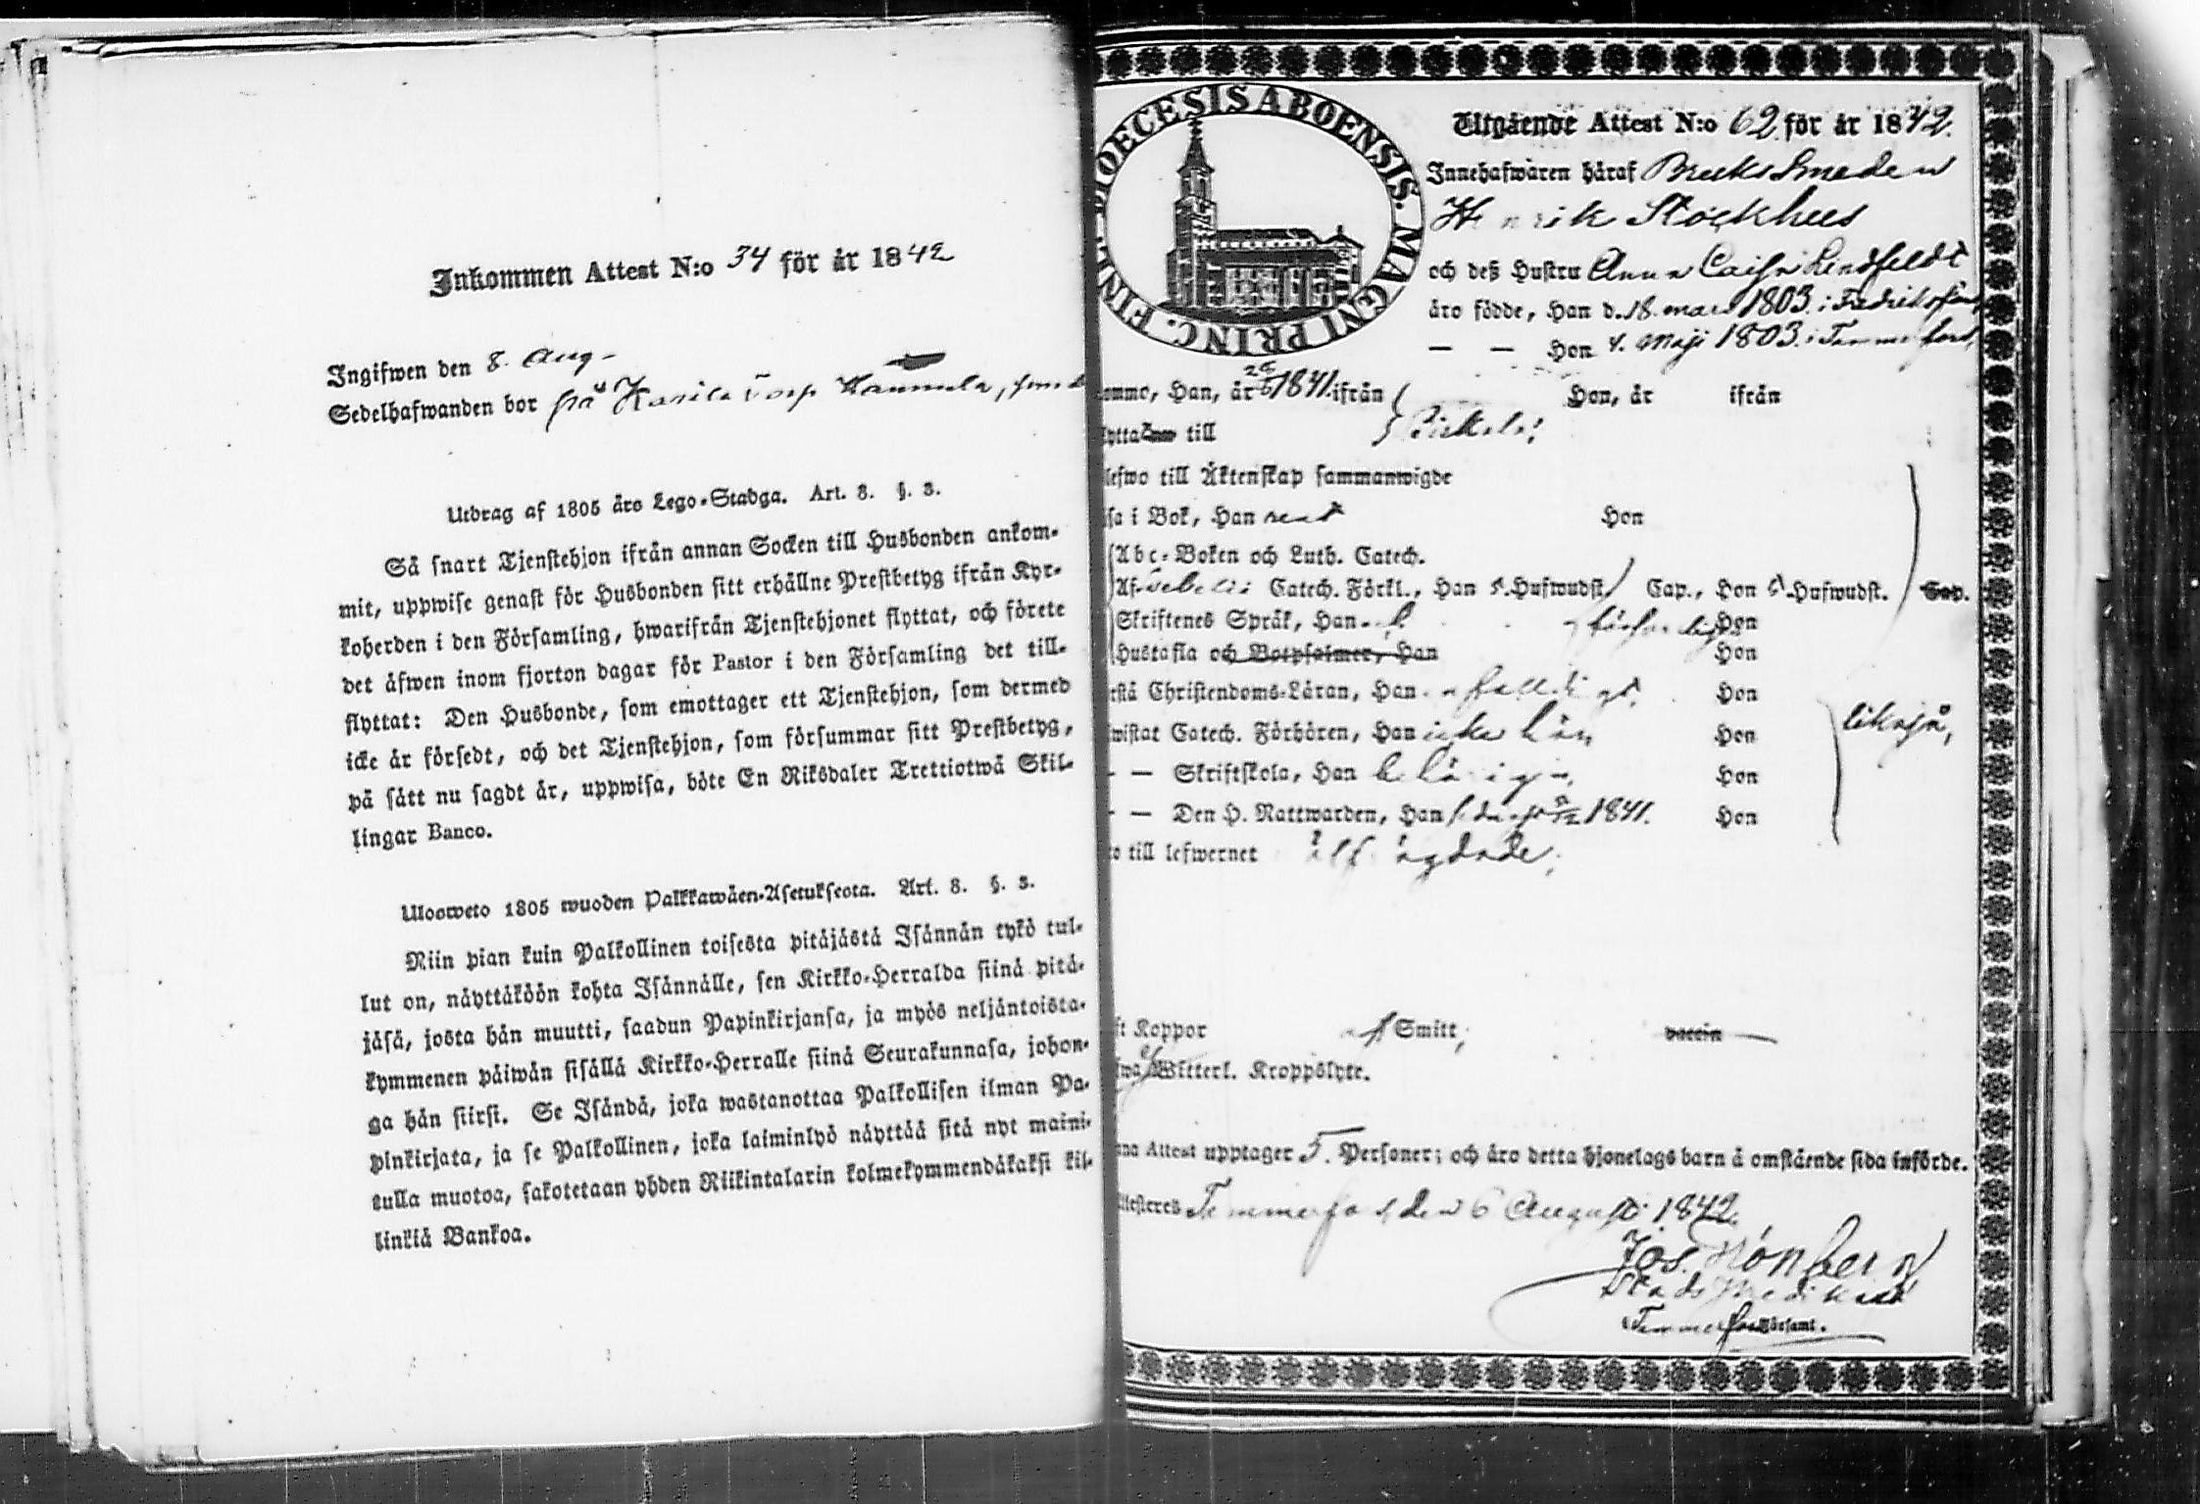 Inkommen Attest N:o 34 för år 1842
Ingifwen den 8. Aug.
Sedelhafwanden bor på Karila torp
Utdrag af 1805 års Lego-Stadga. Art. 8. §. 3.
Så snart Tjenstehjon ifrån annan Socken till Husbonden ankom-
mit, uppwise genast för Husbonden sitt erhållne Prestbetyg ifrån Kyr-
koherden i den Församling, hwarifrån Tjenstehjonet flyttat, och förete
det åfwen inom fjorton dagar för Pastor i den Församling det till-
flyttat: Den Husbonde, som emottager ett Tjenstehjon, som dermed
icke år försedt, och det Tjenstehjon, som försummar sitt Prestbetyg,
på sått nu sagdt år, uppwisa, böte En Riksdaler Trettiotwå Skil-
lingar Banco.
Ulosweto 1805 wuoden Palkkawåen-Asetuksesta. Art. 8. §. 3.
Niin pian kuin Palkollinen toisesta pitåjåstå Isånnån tykö tul-
lut on, nåyttåköön kohta Isånnålle, sen Kirkko-Herralda siinå pitå-
jåså, josta hån muutti, saadun Papinkirjansa, ja myös neljåntoista-
kymmenen påiwån sisållå Kirkko-Herralle siinå Seurakunnasa, johon-
ga hån siirsi. Se Isåndå, joka wastanottaa Palkollisen ilman Pa-
pinkirjata, ja se Palkollinen, joka laiminlyö nåyttåå sitå nyt maini-
tulla muotoa, sakotetaan yhden Riikintalarin kolmekymmendåkaksi kil-
linkiå Bankoa.
DIOECESIS ABOENSIS. MAGNI PRINC. FINL.
Utgående Attest N:o 62 för år 1842.
Innehafwaren håraf Bruks Smeden
Henrik Stockhus
och deß Hustru Anna Caisa Lindfeldt
åro födde, Han d. 18. mars 1803. i Fredriksfors
— — Hon 4. Maji 1803. i Tammerfors,
ommo, Han, år 1841. ifrån Hon, år ifrån
lytta till Birkala;
lefwo till Åktenskap sammanwigde
sa i Bok, Han rent Hon
Abc-Boken och Luth. Catech.
Af Sebelii Catech. Förkl., Han 5.-Hufwudst. Cap., Hon 5.-Hufwudst. Cap.
Skriftenes Språk, Han Hon
Hustafla och Botpsalmer, Han Hon
rstå Christendoms-Låran, Han enfaldigt. Hon
wistat Catech. Förhören, Han Hon likaså,
— — Skriftskola, Han Hon
— — Den H. Nattwarden, Han 1841. Hon
o till lefwernet
st Koppor af Smitt; vaccin
fwa ej Witterl. Kroppslyte.
na Attest upptager 5. Personer; och åro detta hjonelags barn å omstående sida införde.
ttesteres Tammerfors den 6 Augusti 1842.
Jos. Mönberg
Tammerfors Förssaml.